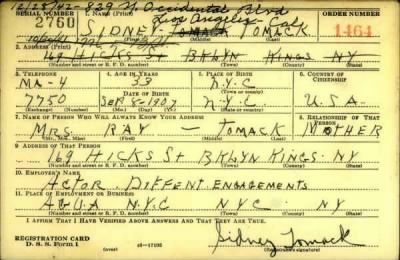 12/28/42-829 N. Occidental Blvd
Los Angeles - Cal.
SERIAL NUMBER 1. NAME (Print) ORDER NUMBER
2760 SIDNEY TOMACK TOMACK 1464
2. ADDRESS (Print)
169 HICKS St BKLYN KINGS NY
(Number and street or R. F. D. number) (Town) (County) (State)
3. TELEPHONE 4. AGE IN YEARS 5. PLACE OF BIRTH 6. COUNTRY OF CITIZENSHIP
MA-4 33 N.Y.C.
DATE OF BIRTH (Town or county)
7750 SEP 8-1907 N.Y.C U.S.A.
(Exchange) (Number) (Mo.) (Day) (Yr.) (State or country)
7. NAME OF PERSON WHO WILL ALWAYS KNOW YOUR ADDRESS 8. RELATIONSHIP OF THAT PERSON
MRS RAY - TOMACK MOTHER
(Mr., Mrs., Miss) (First) (Middle) (Last)
9. ADDRESS OF THAT PERSON
169 HICKS St BKLYN KINGS NY
(Number and street or R. F. D. number) (Town) (County) (State)
10. EMPLOYER'S NAME
ACTOR DIFFENT ENGAGEMENTS
11. PLACE OF EMPLOYMENT OR BUSINESS
AGVA N.Y.C NYC NY
(Number and street or R. F. D. number) (Town) (County) (State)
I AFFIRM THAT I HAVE VERIFIED ABOVE ANSWERS AND THAT THEY ARE TRUE.
REGISTRATION CARD
D. S. S. Form 1 (over) 16-17105
Sidney Tomack